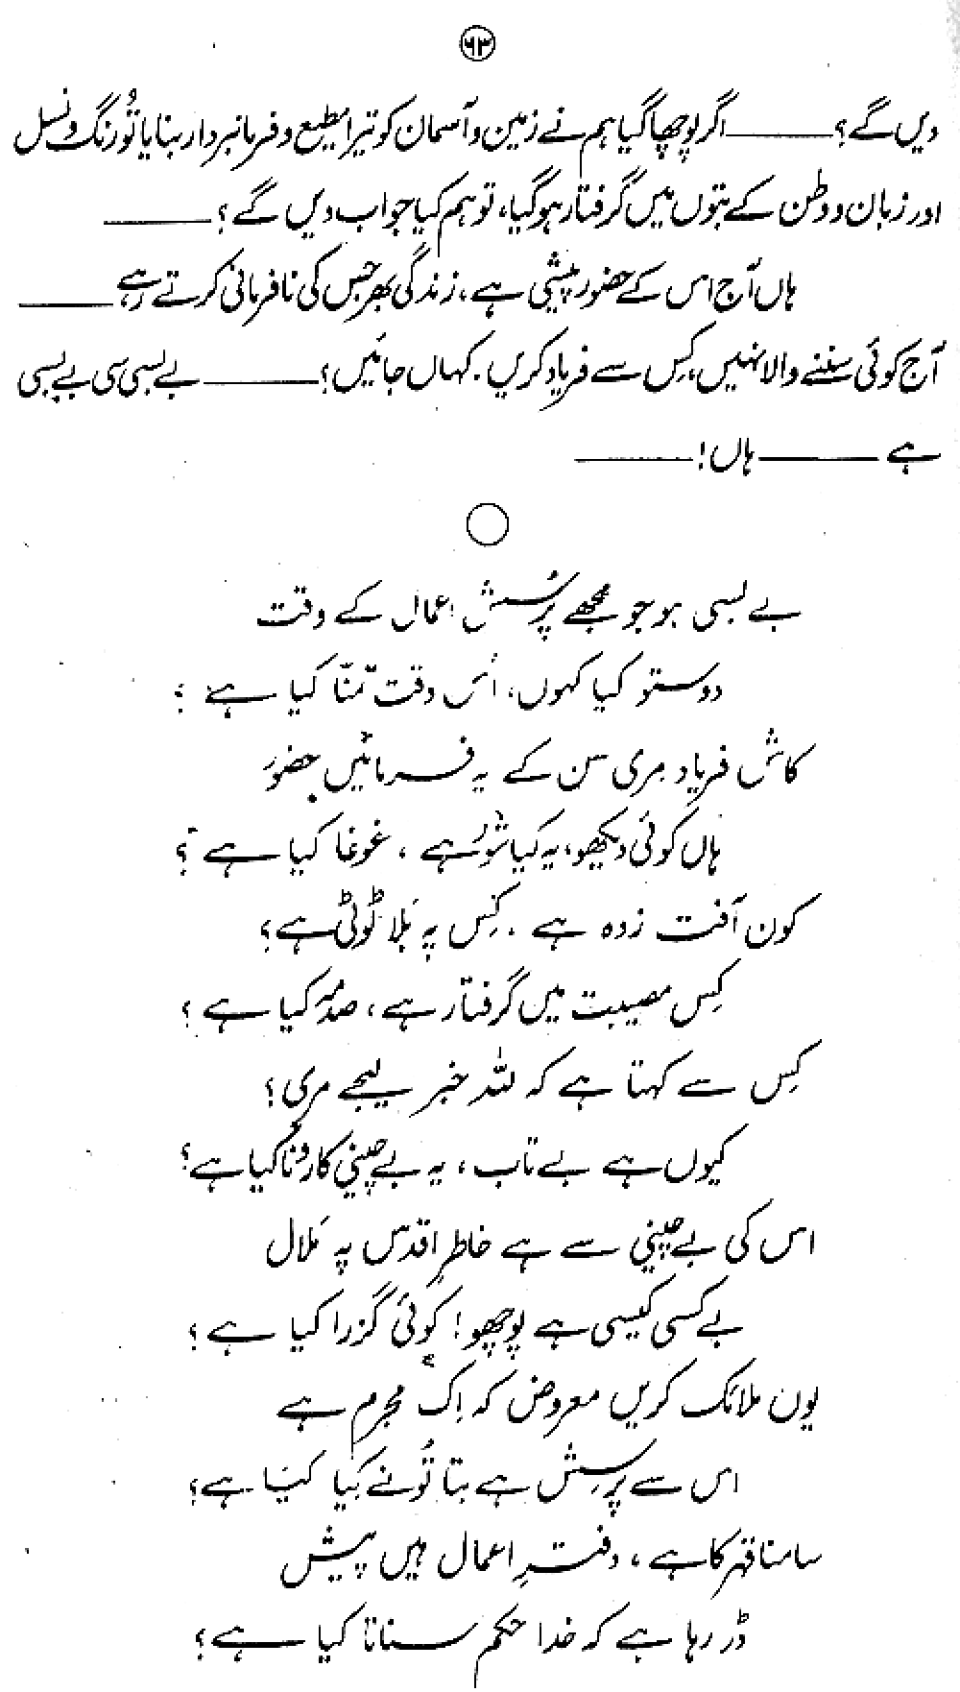 ۶۳
دیں گے؟ ——— اگر پوچھا گیا ہم نے زمین و آسمان کو تیرا مطیع و فرمانبردار بنایا تُو رنگ و نسل
اور زبان و وطن کے بتوں میں گرفتار ہوگیا، تو ہم کیا جواب دیں گے؟ ———
ہاں آج اس کے حضور پیشی ہے، زندگی بھر جس کی نافرمانی کرتے رہے ———
آج کوئی سننے والا نہیں، کِس سے فریاد کریں۔ کہاں جائیں؟ ——— بے بسی سی بے بسی
ہے ——— ہاں! ———
بے بسی ہو جو مجھے پُرسشِ اعمال کے وقت
دوستو کیا کہوں، اُس وقت تمنّا کیا ہے؟
کاش فریاد مِری سن کے یہ فرمائیں حضورؐ
ہاں کوئی دیکھو، یہ کیا شور ہے، غوغا کیا ہے؟
کون آفت زدہ ہے، کِس پہ بَلا ٹوٹی ہے؟
کِس مصیبت میں گرفتار ہے، صدمہ کیا ہے؟
کِس سے کہتا ہے کہ للہ خبر لیجے مری؟
کیوں ہے بے تاب، یہ بے چینی کا رونا کیا ہے؟
اس کی بے چینی سے ہے خاطرِ اقدس پہ مَلال
بے کسی کیسی ہے پوچھو! کوئی گزرا کیا ہے؟
یوں ملائک کریں معروض کہ اِک مجرم ہے
اس سے پُرسش ہے بتا تُو نے کِیا کیا ہے؟
سامنا قہر کا ہے، دفترِ اعمال ہیں پیش
ڈر رہا ہے کہ خدا حکم سناتا کیا ہے؟